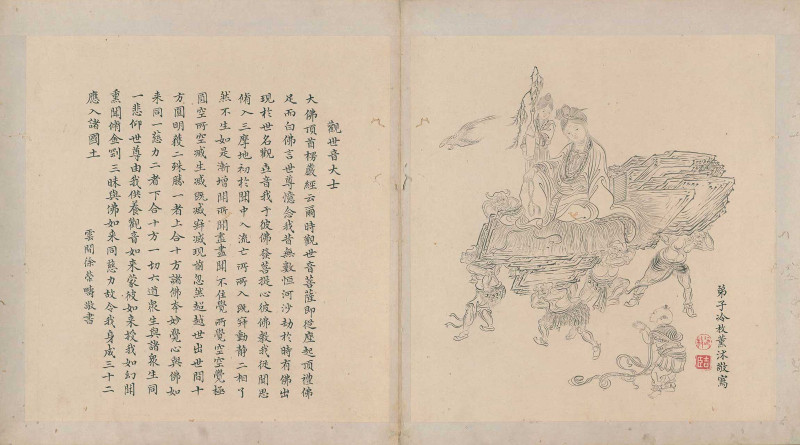 弟子冷枚薰沐敬寫
觀世音大士
大佛頂首楞嚴經云爾時觀世音菩薩即從座起頂禮佛
足而白佛言世尊憶念我昔無數恒河沙劫於時有佛出
現於世名觀世音我于彼佛發菩提心彼佛教我從聞思
脩入三摩地初於聞中入流亡所所入既寂動靜二相了
然不生如是漸增聞所聞盡盡聞不住覺所覺空空覺極
圓空所空滅生滅既滅寂滅現前忽然超越世出世間十
方圓明獲二殊勝一者上合十方諸佛本妙覺心與佛如
来同一慈力二者下合十方一切六道衆生與諸衆生同
一悲仰世尊由我供養觀音如来蒙彼如来授我如幻聞
熏聞脩金剛三昧與佛如来同慈力故令我身成三十二
應入諸國土
雲間徐榮疇敬書